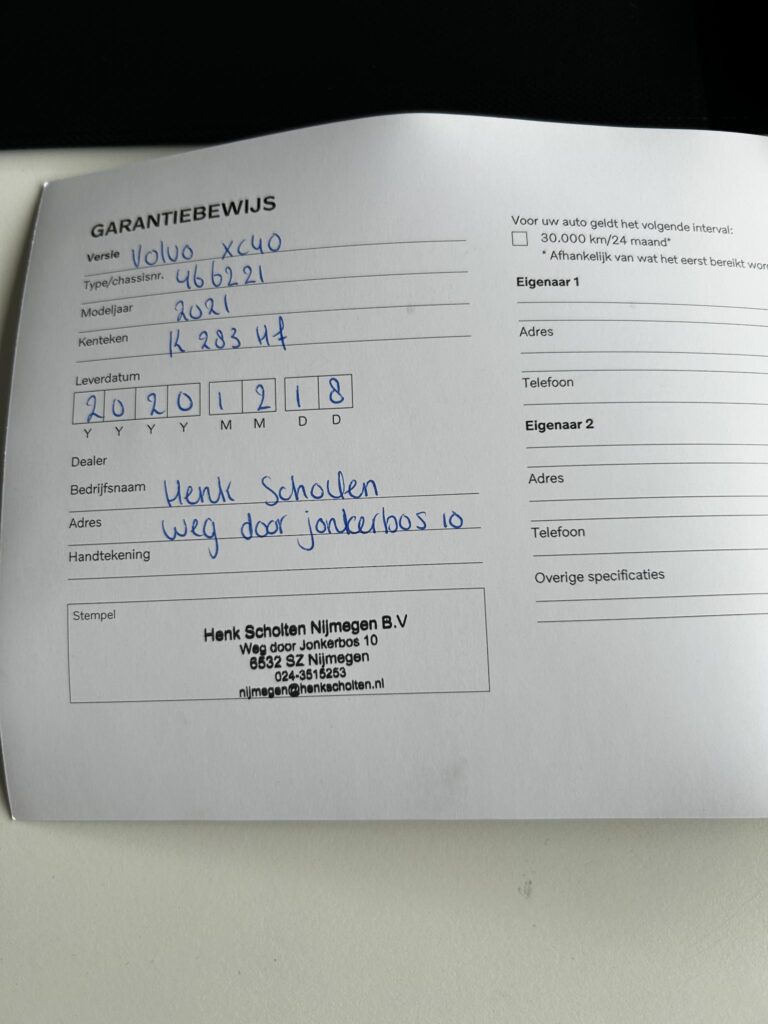 GARANTIEBEWIJS
Versie Volvo XC40
Type/chassisnr. 466221
Modeljaar 2021
Kenteken K 283 Hf
Leverdatum
2 0 2 0 1 2 1 8
Y Y Y Y M M D D
Dealer
Bedrijfsnaam Henk Scholten
Adres weg door jonkerbos 10
Handtekening
Stempel
Henk Scholten Nijmegen B.V
Weg door Jonkerbos 10
6532 SZ Nijmegen
024-3515253
nijmegen@henkscholten.nl
Voor uw auto geldt het volgende interval:
30.000 km/24 maand*
* Afhankelijk van wat het eerst bereikt
Eigenaar 1
Adres
Telefoon
Eigenaar 2
Adres
Telefoon
Overige specificaties